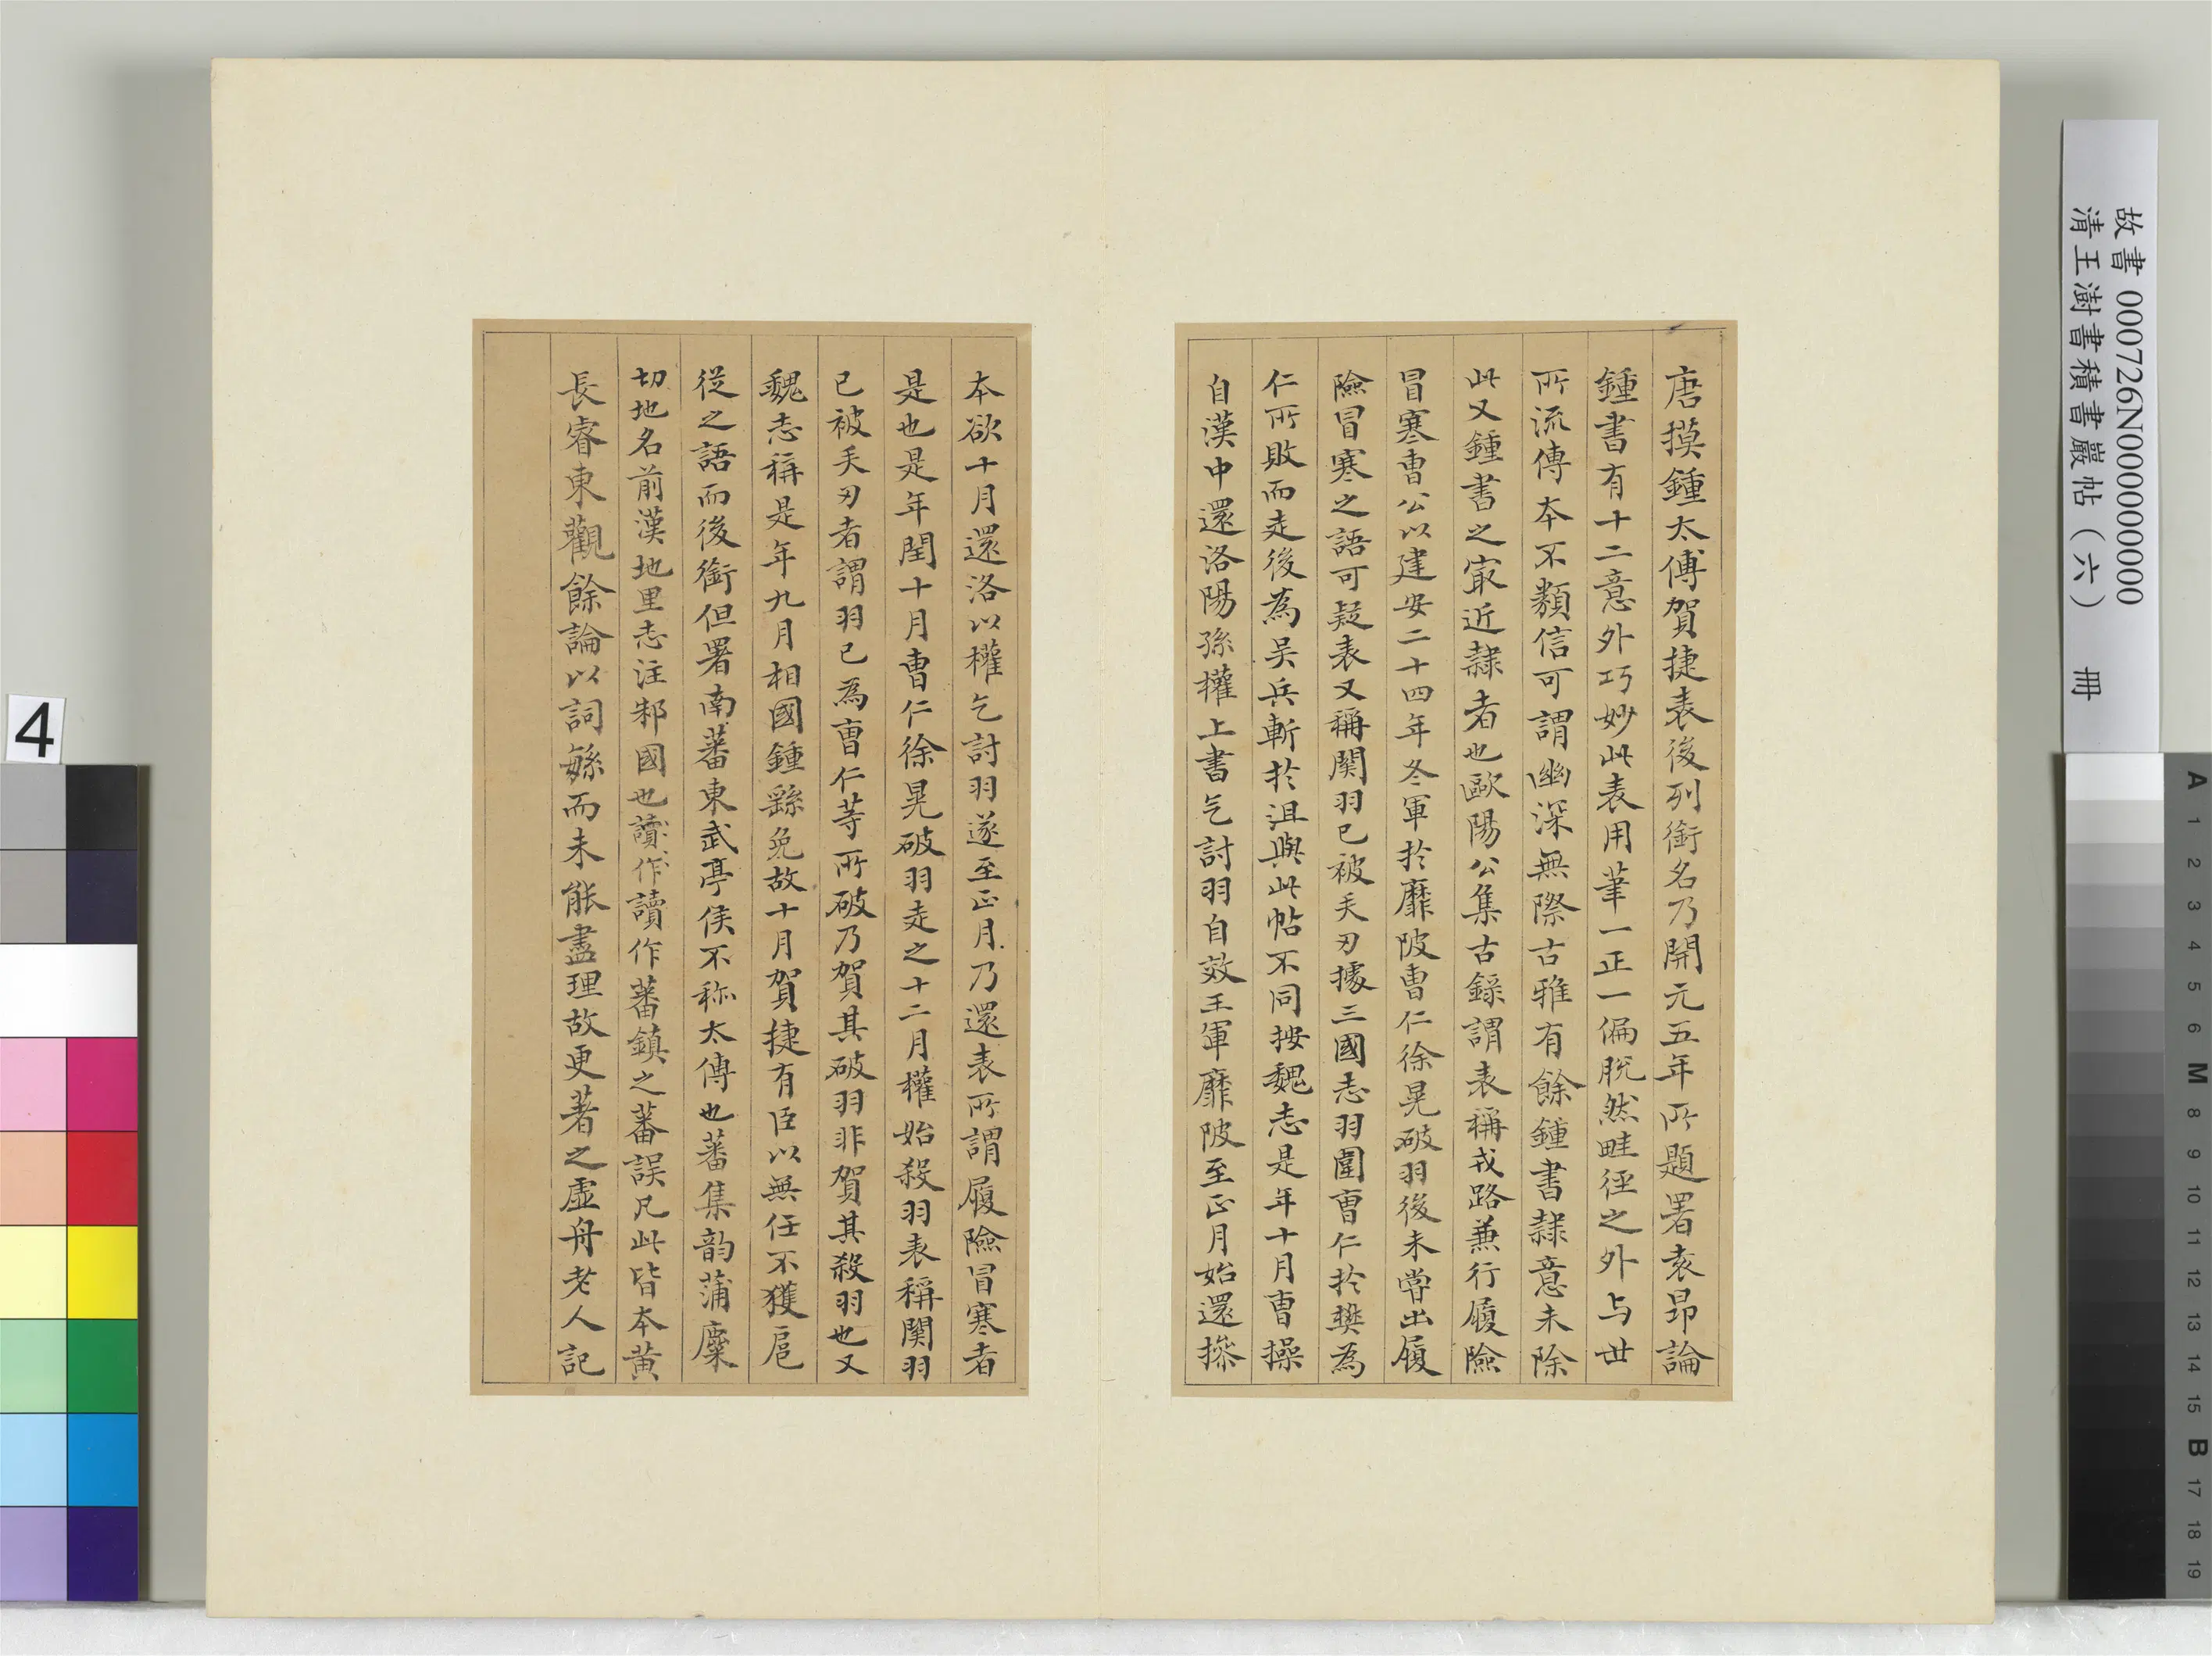 唐摸鍾太傅賀捷表後列銜名乃開元五年所題署袁昂論
鍾書有十二意外巧妙此表用筆一正一偏脫然畦徑之外与世
所流傳本不類信可謂幽深無際古雅有餘鍾書隸意未除
此又鍾書之㝡近隸者也歐陽公集古錄謂表稱戎路兼行履險
冒寒曹公以建安二十四年冬軍於靡陂曹仁徐晃破羽後未嘗出履
險冒寒之語可疑表又稱関羽已被矢刃據三國志羽圍曹仁於樊為
仁所敗而走後為吴兵斬於沮與此帖不同按魏志是年十月曹操
自漢中還洛陽孫權上書乞討羽自效王軍靡陂至正月始還摻
本欲十月還洛以權乞討羽遂至正月乃還表所謂履險冒寒者
是也是年閏十月曹仁徐晃破羽走之十二月權始殺羽表稱関羽
已被矢刃者謂羽已為曹仁等所破乃賀其破羽非賀其殺羽也又
魏志稱是年九月相國鍾繇免故十月賀捷有臣以無任不獲扈
從之語而後銜但署南蕃東武亭侯不称太傅也蕃集韵蒲麋
切地名前漢地里志注邾國也讀作讀作蕃鎮之蕃誤凡此皆本黄
長睿東觀餘論以詞緐而未能盡理故更著之虛舟老人記
故書 000726N000000000
清王澍書積書巖帖（六） 冊
4
A 1 2 3 4 5 6 M 8 9 10 11 12 13 14 15 B 17 18 19